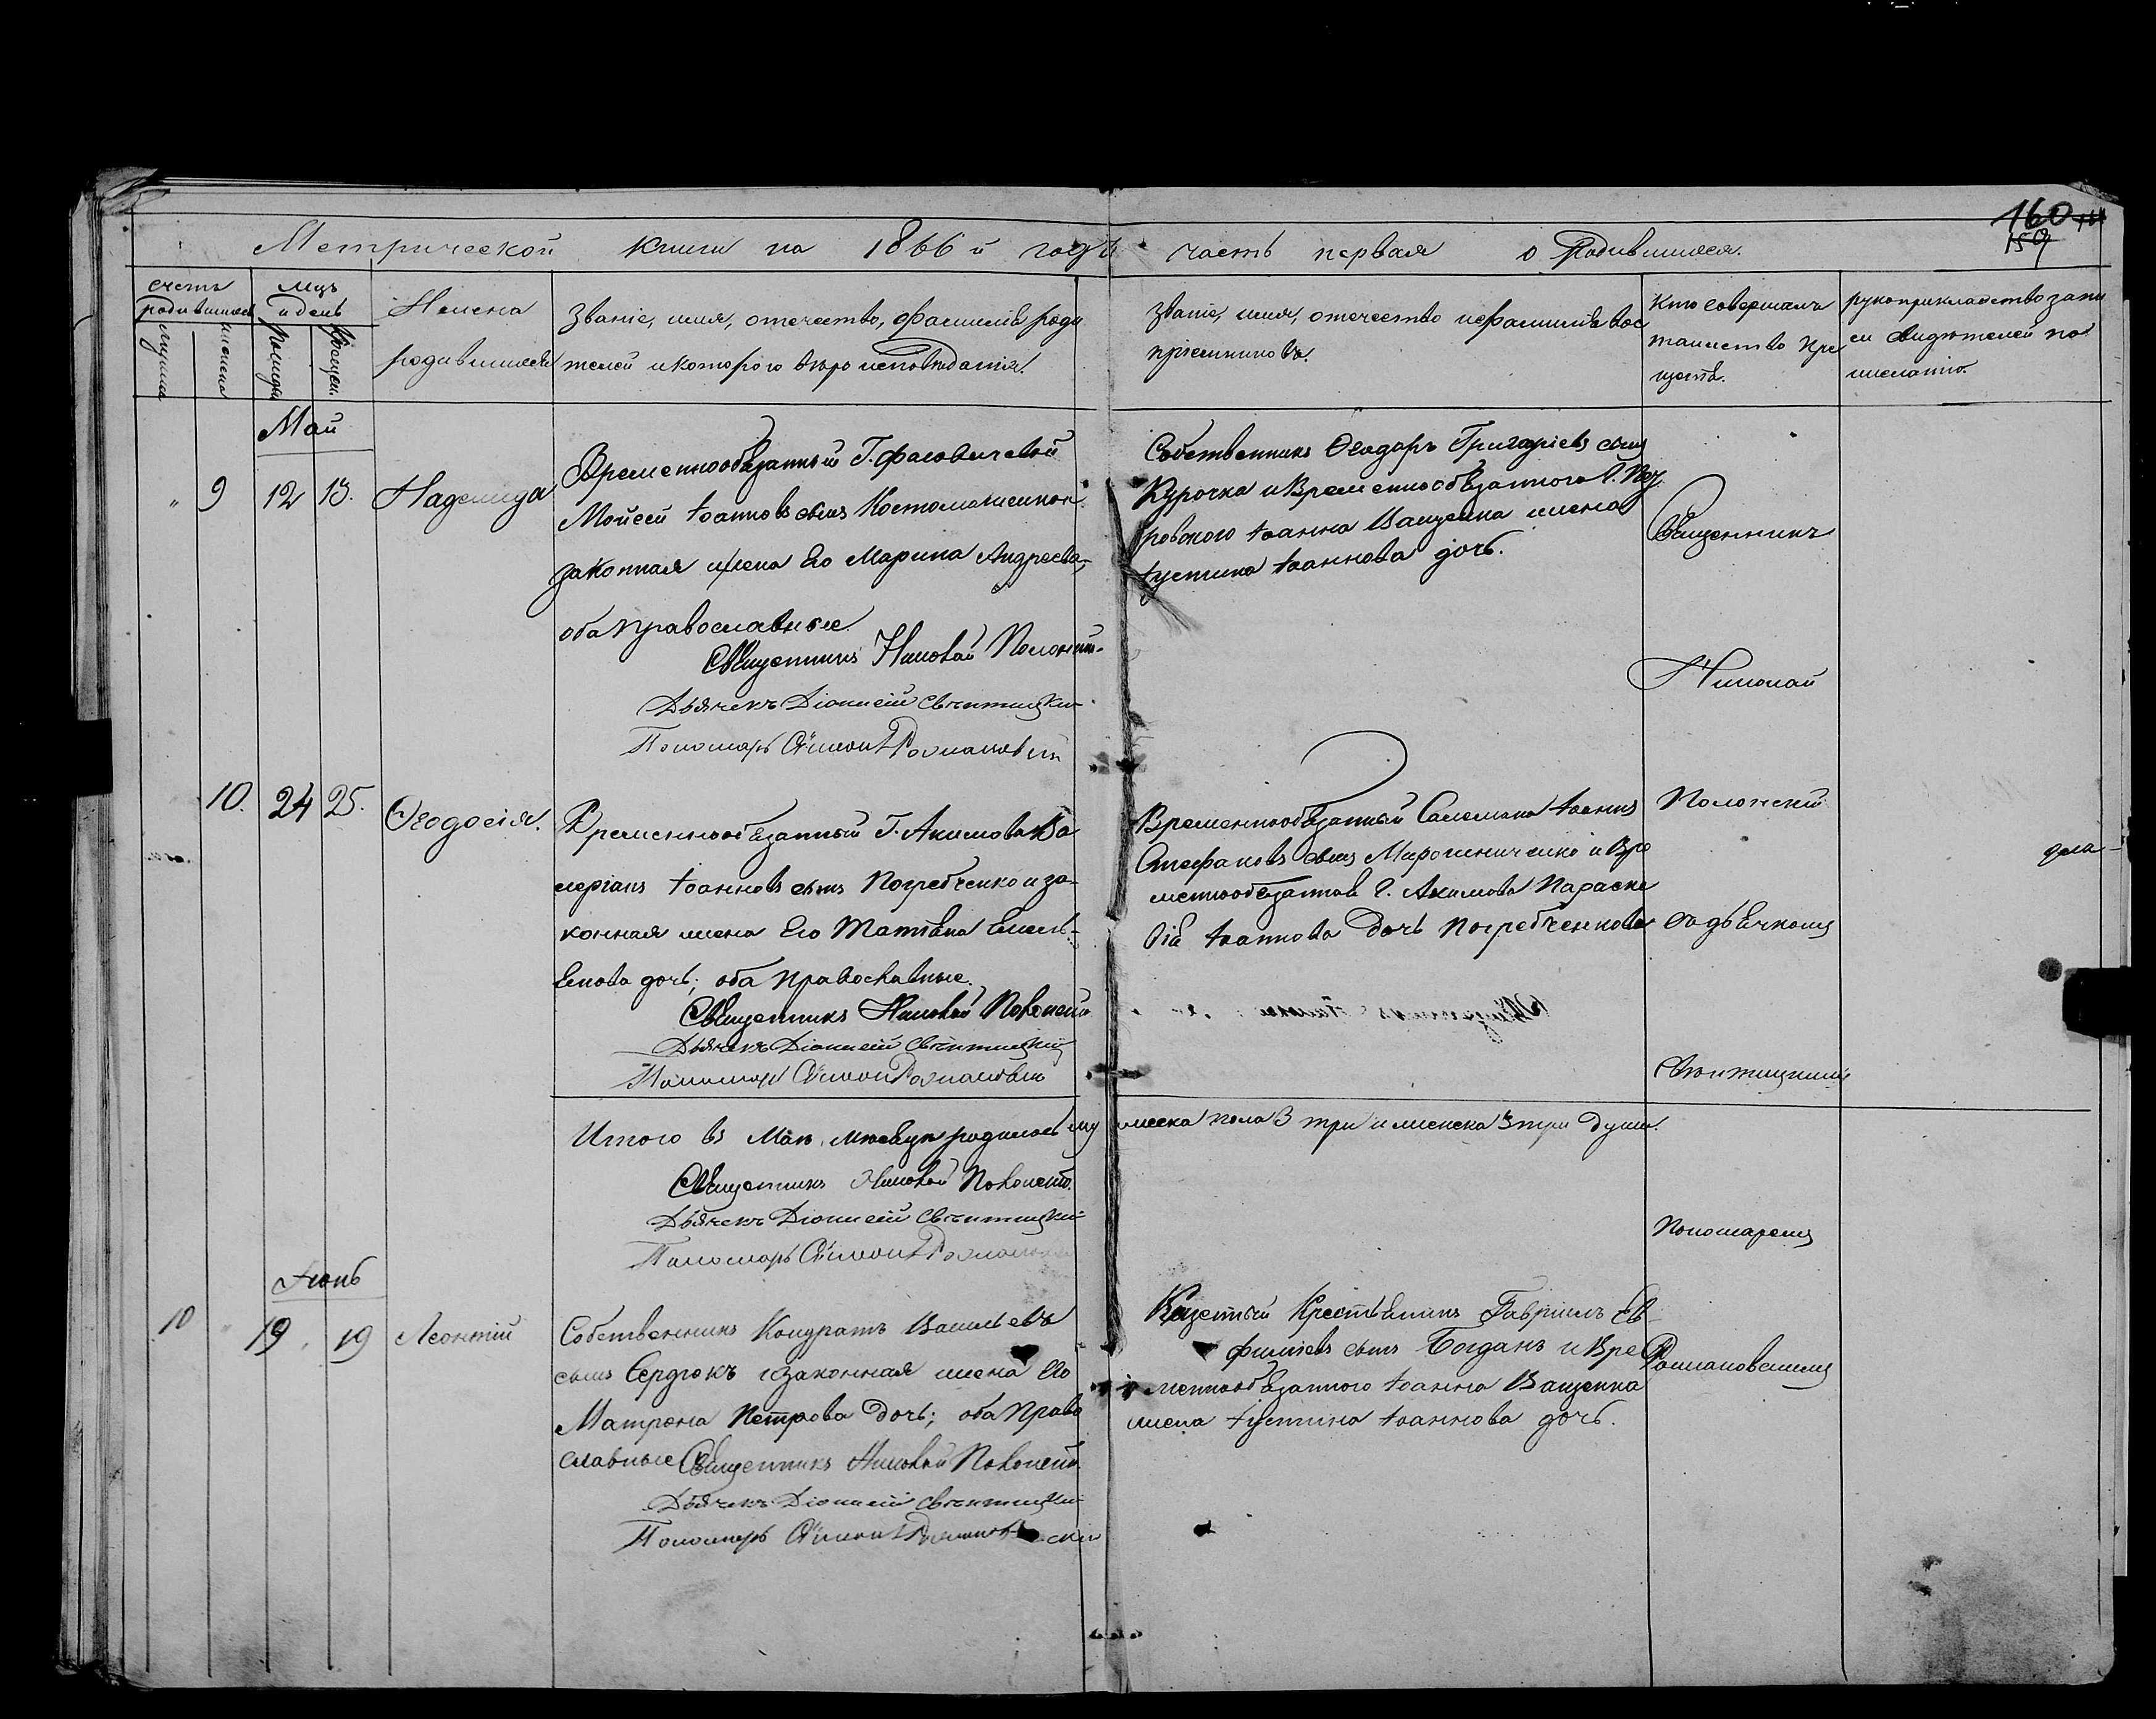 160
159
Метрической книги на 1866й годъ часть первая о Родившихся.
счетъ родившихся
мцъ и день
Имена родившихся
Званіе, имя, отечество, фамилія роди
телей и которого вѣроисповѣданія.
Званіе, имя, отечество и фамилія вос
пріемниковъ.
Кто совершалъ
таинство кре
щенія.
рукоприкладство запи
си свидѣтелей по
желанію.
Май
" 9 12 13. Надежда
Временнообязанный Г.
Мойсей Іоанновъ сынъ
законная жена Его Марина Андреева,
оба православные.
Священникъ Николай Полонскій
Дьячекъ Діонисій Свѣнтицкій
Пономарь Симеонъ Романовскій
Собственникъ Ѳеодоръ Григоріевъ сынъ
Курочка и Временнообязанного Г.
Іоанна Ващенка жена
Іустина Іоаннова дочь.
Священникъ
Николай
Полонскій
10. 24 25. Ѳеодосія.
Временнообязанный Г. Акимова Ва
леріанъ Іоанновъ сынъ Погребченко и за-
конная жена Его Татіана Емель-
янова дочь; оба православные.
Священникъ Николай Полонскій
Дьячекъ Діонисій Свѣнтицкій
Пономарь Симеонъ Романовскій
Временнообязанный Іоаннъ
Стефановъ сынъ Мирошниченко и Вре
меннообязанная Г. Акимова Параске
вія Іоаннова Дочь Погребченкова
съ дьячкомъ
Свѣнтицкимъ
Итого въ Маѣ мѣсяцѣ родилось му жеска пола 3 три и женска 3 три души.
Священникъ Николай Полонскій
Дьячекъ Діонисій Свѣнтицкій
Пономарь Симеонъ Романовскій
Пономаремъ
Романовскимъ
Іюнь
10 " 19 19 Леонтій
Собственникъ Кондратъ Васильевъ
сынъ Сердюкъ и законная жена Его
Матрона Петрова дочь; оба право
славные Священникъ Николай Полонскій
Дьячекъ Діонисій Свѣнтицкій
Пономарь Симеонъ Романовскій
Казенный Крестьянинъ Гавріилъ Ев
фиміевъ сынъ Богданъ и Вре
меннообязанного Іоанна Ващенка
жена Іустина Іоаннова дочь.